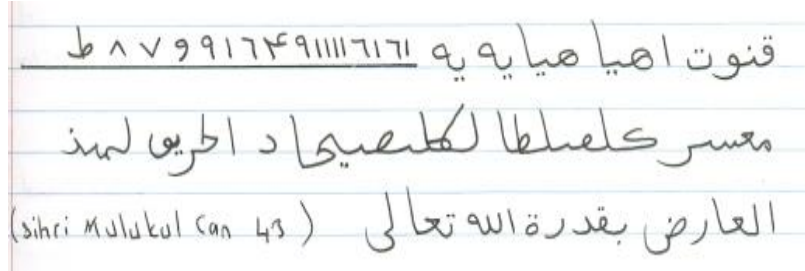 قنوت اهيا هيا يه يه ٨٧٩٩١٦٤٩١١١١١٦١٦١ ط
معسر كلصلطا لكلمصيحا د الحريق لهذ
العارض بقدرة الله تعالى (sihri Mulukul Can 43)